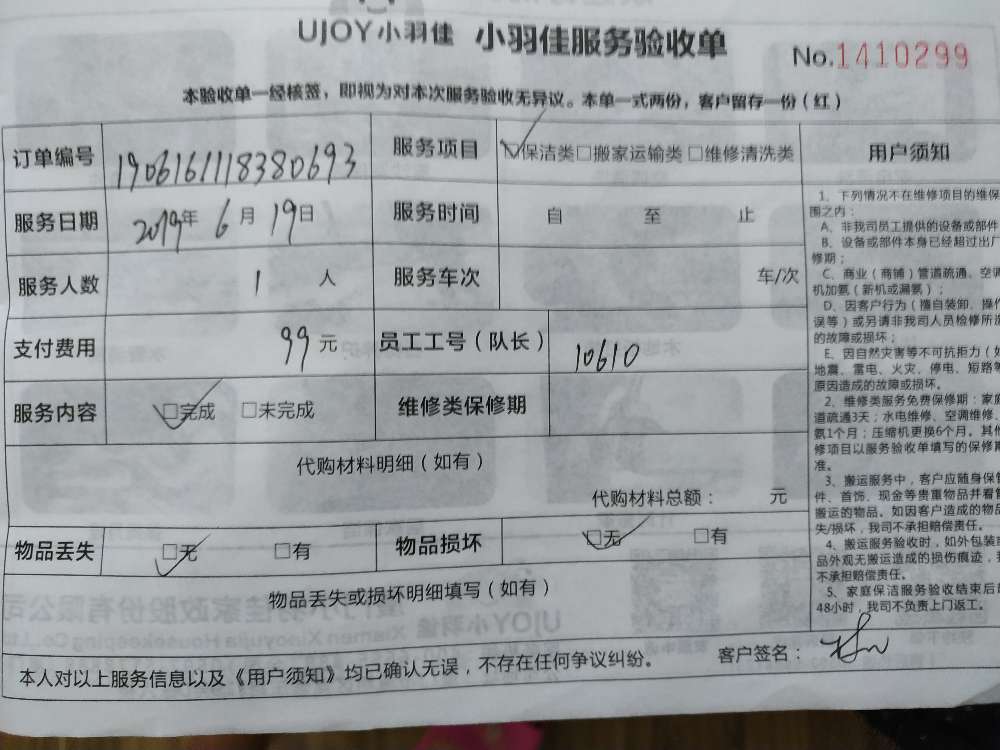 UJOY小羽佳 小羽佳服务验收单 No.1410299
本验收单一经核签，即视为对本次服务验收无异议。本单一式两份，客户留存一份（红）
订单编号 1906161118380693 服务项目 ☑保洁类□搬家运输类□维修清洗类
服务日期 2019年6月19日 服务时间 自 至 止
服务人数 1 人 服务车次 车/次
支付费用 99元 员工工号（队长） 10610
服务内容 ☑完成 □未完成 维修类保修期
代购材料明细（如有）
代购材料总额： 元
物品丢失 ☑无 □有 物品损坏 ☑无 □有
物品丢失或损坏明细填写（如有）
本人对以上服务信息以及《用户须知》均已确认无误，不存在任何争议纠纷。 客户签名：
用户须知
1、下列情况不在维修项目的维保
围之内：
A、非我司员工提供的设备或部件
B、设备或部件本身已经超过出厂
修期；
C、商业（商铺）管道疏通、空调
机加氨（新机或漏氨）；
D、因客户行为（擅自装卸、操作
误等）或另请非我司人员检修所造
的故障或损坏；
E、因自然灾害等不可抗拒力（如
地震、雷电、火灾、停电、短路等
原因造成的故障或损坏。
2、维修类服务免费保修期：家庭
道疏通3天；水电维修、空调维修、
氨1个月；压缩机更换6个月。其他
修项目以服务验收单填写的保修期
准。
3、搬运服务中，客户应随身保管
件、首饰、现金等贵重物品并看管
搬运的物品。如因客户造成的物品
失/损坏，我司不承担赔偿责任。
4、搬运服务验收时，如外包装或
品外观无搬运造成的损伤痕迹，我
不承担赔偿责任。
5、家庭保洁服务验收结束后超
48小时，我司不负责上门返工。